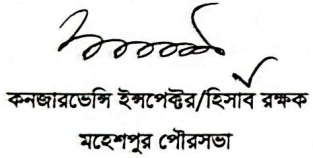 কনজারভেন্সি ইন্সপেক্টর/হিসাব রক্ষক
মহেশপুর পৌরসভা